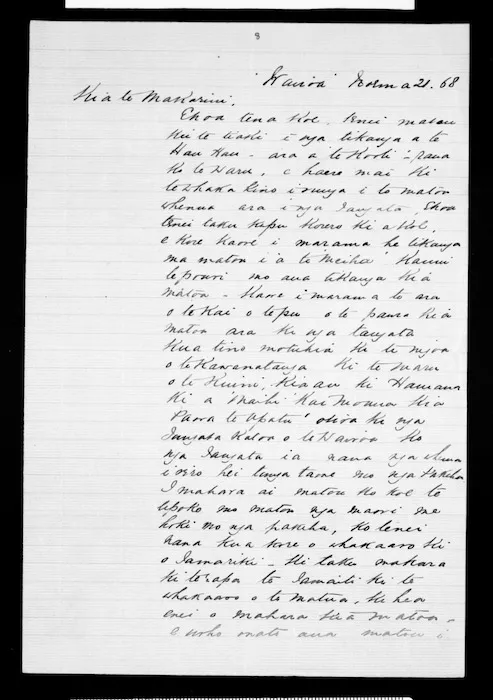 8
Wairoa Noema 21. 68
Kia te Makarini,
Ehoa tena koe. Tenei matou
kei te tiaki i nga tikanga a te
Hau Hau - ara a te Kooti i rana
ko te Waru, e haere mai ki
te whaka kino i runga i to matou
whenua ara i nga Tangata, Ehoa
tenei taku kupu korero ki a koe,
e kore kaore i marama he tikanga
ma matou i a te Meiha' Kanui
te pouri mo ana tikanga kia
matou - Kaore i marama te ara
o te kai o te pu o te paura kia
matou ara ki nga tangata
kua tino motuhia ki te ingoa
o te Kawanatanga ki te maru
o te Kuini, kia au ki Hamana
ki a Maihi Kaimoana kia
Paora te Apatu' otira ki nga
Tangata Katoa o te Wairoa ko
nga Tangata ia nana nga whenua
i riro hei tunga taone mo nga
I mahara ai matou ko koe te
upoko mo matou nga maori me
hoki mo nga pakeha, ko tenei
nana kua kore o whakaaro ki
o Tamariki - Ki taku makara
ki te rapa te Tamaiti ki te
whakaaro o te matua, kei hea
enei o mahara kia matou -
e noho onoti ana matou i